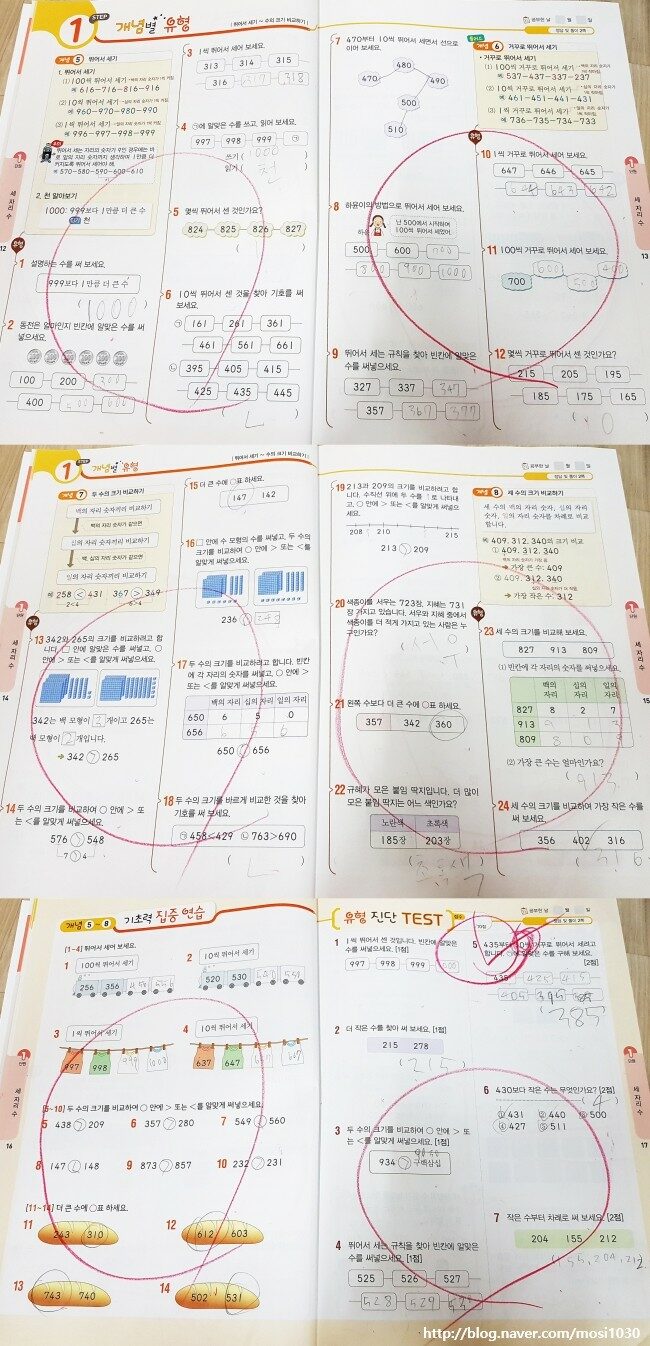 1 STEP 개념별 유형
| 뛰어서 세기 ~ 수의 크기 비교하기 |
개념 5 뛰어서 세기
1. 뛰어서 세기
(1) 100씩 뛰어서 세기
예 616-716-816-916
(2) 10씩 뛰어서 세기
예 960-970-980-990
(3) 1씩 뛰어서 세기
예 996-997-998-999
뛰어서 세는 자리의 숫자가 9인 경우에는 바로 앞의 자리 숫자까지 생각하여 1만큼 더 커지도록 뛰어서 세어야 해.
예 570-580-590-600-610
2. 천 알아보기
1000: 999보다 1만큼 더 큰 수
천
유형
12
1 설명하는 수를 써 보세요.
999보다 1만큼 더 큰 수
(1000)
2 동전은 얼마인지 빈칸에 알맞은 수를 써넣으세요.
100 200 300
400 500 600
3 1씩 뛰어서 세어 보세요.
313 314 315
316 317 318
4 ㉠에 알맞은 수를 쓰고, 읽어 보세요.
997 998 999 ㉠
쓰기 (1000)
읽기 (천)
5 몇씩 뛰어서 센 것인가요?
824 825 826 827
6 10씩 뛰어서 센 것을 찾아 기호를 써 보세요.
㉠ 161 261 361
461 561 661
㉡ 395 405 415
425 435 445
(ㄴ)
7 470부터 10씩 뛰어서 세면서 선으로 이어 보세요.
480
470 490
500
510
8 하윤이의 방법으로 뛰어서 세어 보세요.
하윤
난 500에서 시작하여 100씩 뛰어서 세었어.
500 600 700
800 900 1000
9 뛰어서 세는 규칙을 찾아 빈칸에 알맞은 수를 써넣으세요.
327 337 347
357 367 377
공부한 날 월 일
정답 및 풀이 2쪽
개념 6 거꾸로 뛰어서 세기
• 거꾸로 뛰어서 세기
(1) 100씩 거꾸로 뛰어서 세기
예 537-437-337-237
(2) 10씩 거꾸로 뛰어서 세기
예 461-451-441-431
(3) 1씩 거꾸로 뛰어서 세기
예 736-735-734-733
유형
10 1씩 거꾸로 뛰어서 세어 보세요.
647 646 645
644 643 642
11 100씩 거꾸로 뛰어서 세어 보세요.
700 600 500 400
12 몇씩 거꾸로 뛰어서 센 것인가요?
215 205 195
185 175 165
1단원
세 자리 수
13
1 개념별 유형
| 뛰어서 세기 ~ 수의 크기 비교하기 |
개념 7 두 수의 크기 비교하기
백의 자리 숫자끼리 비교하기
백의 자리 숫자가 같으면
십의 자리 숫자끼리 비교하기
백, 십의 자리 숫자가 같으면
일의 자리 숫자끼리 비교하기
예 258 < 431 367 > 349
2<4 6>4
유형
14
13 342와 265의 크기를 비교하려고 합니다. □ 안에 알맞은 수를 써넣고, ○ 안에 > 또는 <를 알맞게 써넣으세요.
342는 백 모형이 3개이고 265는
백 모형이 2개입니다.
→ 342 > 265
14 두 수의 크기를 비교하여 ○ 안에 > 또는 <를 알맞게 써넣으세요.
576 > 548
7 > 4
15 더 큰 수에 ○표 하세요.
147 142
16 □ 안에 수 모형의 수를 써넣고, 두 수의 크기를 비교하여 ○ 안에 > 또는 <를 알맞게 써넣으세요.
236 243
17 두 수의 크기를 비교하려고 합니다. 빈칸에 각 자리의 숫자를 써넣고, ○ 안에 > 또는 <를 알맞게 써넣으세요.
백의 자리 십의 자리 일의 자리
650 6 5 0
656 6 6
650 656
18 두 수의 크기를 바르게 비교한 것을 찾아 기호를 써 보세요.
㉠ 458<429 ㉡ 763>690
(ㄴ)
19 213과 209의 크기를 비교하려고 합니다. 수직선 위에 두 수를 ↑로 나타내고, ○ 안에 > 또는 <를 알맞게 써넣으세요.
208 210 215
213 > 209
20 색종이를 서우는 723장, 지혜는 731장 가지고 있습니다. 서우와 지혜 중에서 색종이를 더 적게 가지고 있는 사람은 누구인가요?
21 왼쪽 수보다 더 큰 수에 ○표 하세요.
357 342 360
22 규혜가 모은 붙임 딱지입니다. 더 많이 모은 붙임 딱지는 어느 색인가요?
노란색 초록색
185장 203장
(초록색)
공부한 날 월 일
정답 및 풀이 2쪽
개념 8 세 수의 크기 비교하기
세 수의 백의 자리 숫자, 십의 자리 숫자, 일의 자리 숫자를 차례로 비교합니다.
예 409, 312, 340의 크기 비교
① 409, 312, 340
→ 가장 큰 수: 409
② 409, 312, 340
→ 가장 작은 수: 312
유형
23 세 수의 크기를 비교해 보세요.
827 913 809
(1) 빈칸에 각 자리의 숫자를 써넣으세요.
백의 자리 십의 자리 일의 자리
827 8 2 7
913 9 1 3
809 8 0
(2) 가장 큰 수는 얼마인가요?
(913)
24 세 수의 크기를 비교하여 가장 작은 수를 써 보세요.
356 402 316
(316)
1단원
세 자리 수
15
개념 5~8 기초력 집중 연습
[1~4] 뛰어서 세어 보세요.
1 100씩 뛰어서 세기
256 356 456 556
2 10씩 뛰어서 세기
520 530 540 550
3 1씩 뛰어서 세기
997 998 999 1000
4 10씩 뛰어서 세기
637 647 657 667
[5~10] 두 수의 크기를 비교하여 ○ 안에 > 또는 <를 알맞게 써넣으세요.
5 438 > 209
6 357 > 280
7 549 560
8 147 < 148
9 873 > 857
10 232 > 231
[11~14] 더 큰 수에 ○표 하세요.
11 243 310
12 612 603
13 743 740
14 502 531
1단원
세 자리 수
16
유형 진단 TEST
점수
공부한 날 월 일
정답 및 풀이 2쪽
1 1씩 뛰어서 센 것입니다. 빈칸에 알맞은 수를 써넣으세요. [1점]
997 998 999 1000
2 더 작은 수를 찾아 써 보세요. [1점]
215 278
(215)
3 두 수의 크기를 비교하여 ○ 안에 > 또는 <를 알맞게 써넣으세요. [1점]
934 > 구백삼십
4 뛰어서 세는 규칙을 찾아 빈칸에 알맞은 수를 써넣으세요. [1점]
525 526 527
528 529
5 435부터 10씩 거꾸로 뛰어서 세려고 합니다. 알맞은 수를 구해 보세요. [2점]
435 425 415
405 395
385
6 430보다 작은 수는 무엇인가요? [2점]
(4)
① 431 ② 440 ③ 500
④ 427 ⑤ 511
7 작은 수부터 차례로 써 보세요. [2점]
204 155 212
(155, 204, 212
1단원
세 자리 수
17
http://blog.naver.com/mosi1030